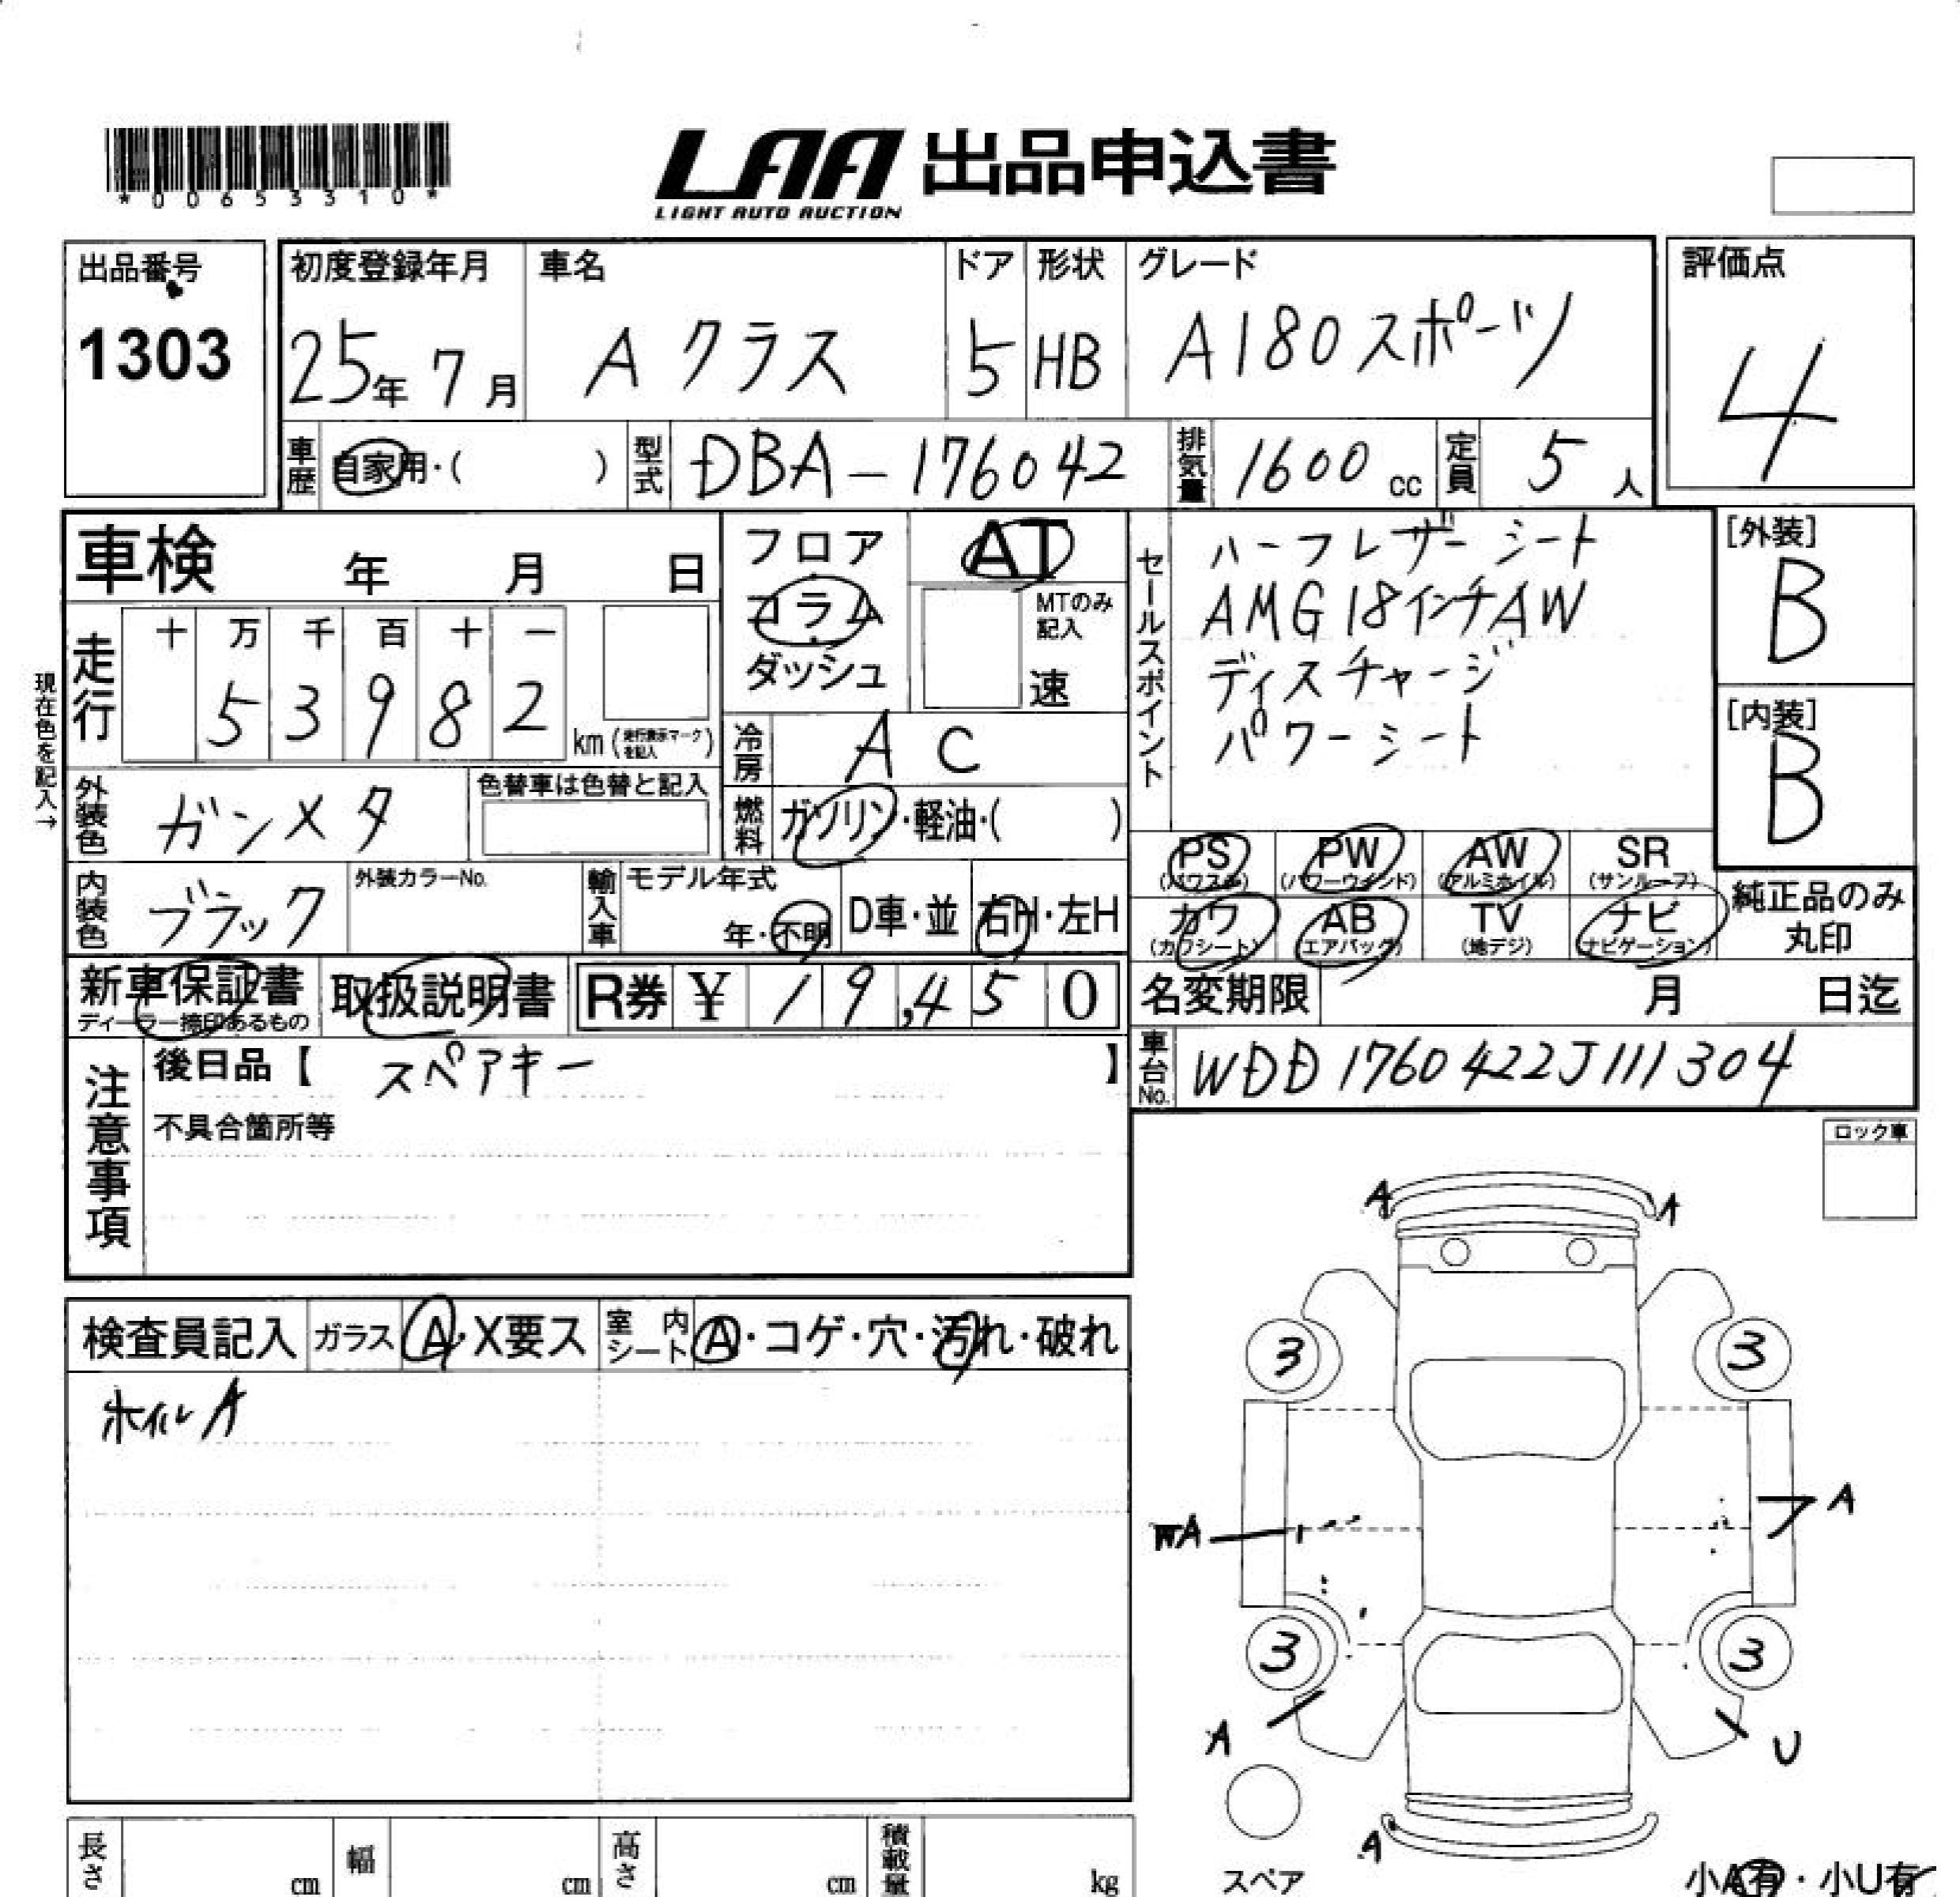 *00653310*
LAA 出品申込書
LIGHT AUTO AUCTION
出品番号
1303
初度登録年月
25年 7月
車名
Aクラス
ドア
5
形状
HB
グレード
A180スポーツ
評価点
4
車歴 自家用・( )
型式 DBA-176042
排気量 1600 cc
定員 5 人
車検 年 月 日
フロア
コラム
ダッシュ
AT
MTのみ
記入
速
セールスポイント
ハーフレザーシート
AMG18インチAW
ディスチャージ
パワーシート
[外装]
B
[内装]
B
現在色を記入→
走行
十 万 千 百 十 一
5 3 9 8 2
km (走行表示マークを記入)
冷房 AC
外装色 ガンメタ
色替車は色替と記入
燃料 ガソリン・軽油・( )
内装色 ブラック
外装カラーNo.
輸入車
モデル年式
年・不明
D車・並
右H・左H
PS (パワステ)
PW (パワーウインド)
AW (アルミホイル)
SR (サンルーフ)
カワ (カワシート)
AB (エアバッグ)
TV (地デジ)
ナビ (ナビゲーション)
純正品のみ
丸印
新車保証書
ディーラー捺印あるもの
取扱説明書
R券 ¥ 19,450
名変期限 月 日迄
車台No. WDD1760422J111304
注意事項
後日品【 スペアキー 】
不具合箇所等
ロック車
検査員記入
ガラス A・X要ス
室内シート A・コゲ・穴・汚れ・破れ
ホイルA
A
A
3
3
WA
A
3
3
A
U
A
スペア
小A有・小U有
長さ cm
幅 cm
高さ cm
積載量 kg